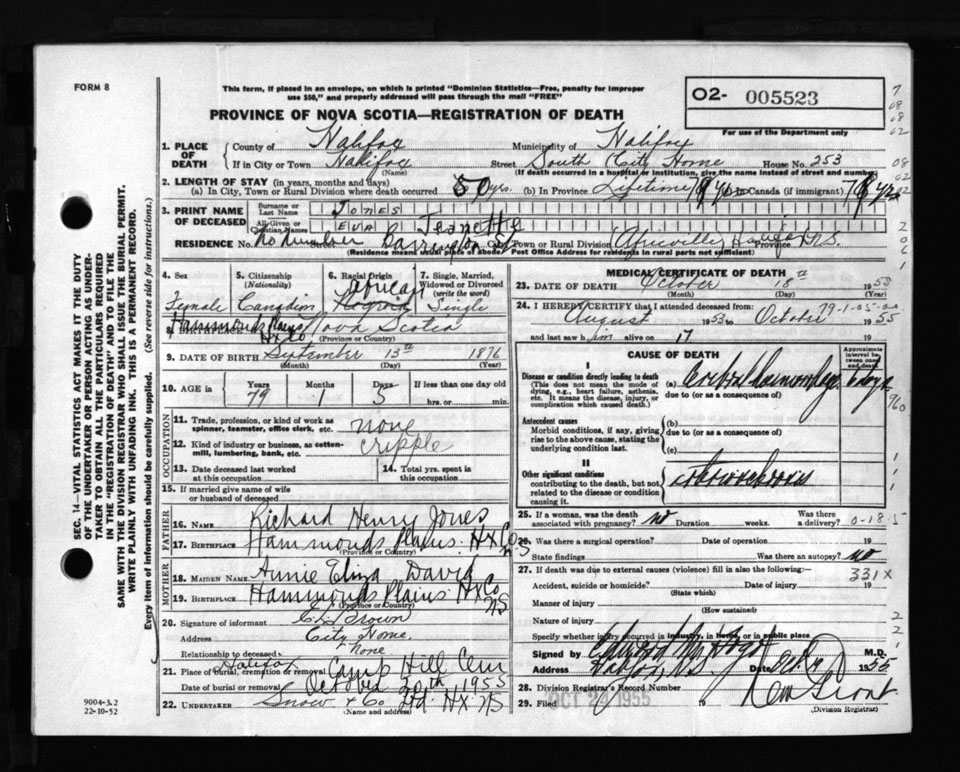 FORM 8
This form, if placed in an envelope, on which is printed "Dominion Statistics—Free, penalty for improper
use $50," and properly addressed will pass through the mail "FREE"
O2- 005523
PROVINCE OF NOVA SCOTIA—REGISTRATION OF DEATH
For use of the Department only
1. PLACE OF DEATH
County of Halifax Municipality of Halifax
If in City or Town Halifax Street South City Home House No. 253
(Name) (If death occurred in a hospital or institution, give the name instead of street and number)
2. LENGTH OF STAY (in years, months and days)
(a) In City, Town or Rural Division where death occurred 50 yrs. (b) In Province Lifetime 79 yrs In Canada (if immigrant) 79 yrs
3. PRINT NAME OF DECEASED
Surname or Last Name Jones
All Given or Christian Names Eva Jeanette
RESIDENCE No. no number Barrington St City, Town or Rural Division Africville Halifax Province N.S.
(Residence means usual place of abode) Post Office Address for residents in rural parts not sufficient)
4. Sex Female
5. Citizenship (Nationality) Canadian
6. Racial Origin African
7. Single, Married, Widowed or Divorced (write the word) Single
8. BIRTHPLACE Hammonds Plains Hx Co Nova Scotia
(Province or Country)
9. DATE OF BIRTH September 13th 1876
(Month) (Day) (Year)
10. AGE in Years 79 Months 1 Days 5 If less than one day old
hrs. or min.
OCCUPATION
11. Trade, profession, or kind of work as
spinner, teamster, office clerk, etc. none
12. Kind of industry or business, as cotton-
mill, lumbering, bank, etc. cripple
13. Date deceased last worked
at this occupation
14. Total yrs. spent in
this occupation
15. If married give name of wife
or husband of deceased
FATHER
16. NAME Richard Henry Jones
17. BIRTHPLACE Hammonds Plains Hx Co. NS
(Province or Country)
MOTHER
18. MAIDEN NAME Annie Eliza David
19. BIRTHPLACE Hammonds Plains Hx Co NS
(Province or Country)
20. Signature of informant Brown
Address City Home.
Relationship to deceased None
21. Place of burial, cremation or removal Halifax Camp Hill Cem
Date of burial or removal October 20th 1955
22. UNDERTAKER Snow & Co Ltd. Hx NS
(Name and address)
MEDICAL CERTIFICATE OF DEATH
23. DATE OF DEATH October 18th 1955
(Month) (Day) (Year)
24. I HEREBY CERTIFY that I attended deceased from 79-1-05-
August 1953 to October 1955
and last saw h im alive on 17 19
CAUSE OF DEATH
Approximate interval between onset and death
I
Disease or condition directly leading to death
(This does not mean the mode of
dying, e.g., heart failure, asthenia,
etc. It means the disease, injury, or
complication which caused death.)
(a) Cerebral haemorrhage
due to (or as a consequence of)
Antecedent causes
Morbid conditions, if any, giving
rise to the above cause, stating the
underlying condition last.
(b)
due to (or as a consequence of)
(c)
II
Other significant conditions
contributing to the death, but not
related to the disease or condition
causing it.
25. If a woman, was the death
associated with pregnancy? no Duration weeks. Was there
a delivery?
26. Was there a surgical operation? Date of operation 19
State findings Was there an autopsy? no
27. If death was due to external causes (violence) fill in also the following:
331X
Accident, suicide or homicide? Date of injury 19
(State which)
Manner of injury
(How sustained)
Nature of injury
Specify whether injury occurred in industry, in home, or in public place
Signed by M.D.
Address Halifax, N.S. Date Oct. 1955
28. Division Registrar's Record Number
29. Filed OCT 1955 19
(Division Registrar)
SEC. 14—VITAL STATISTICS ACT MAKES IT THE DUTY
OF THE UNDERTAKER OR PERSON ACTING AS UNDER-
TAKER TO OBTAIN ALL THE PARTICULARS REQUIRED
IN THE "REGISTRATION OF DEATH" AND TO FILE THE
SAME WITH THE DIVISION REGISTRAR WHO SHALL ISSUE THE BURIAL PERMIT.
WRITE PLAINLY WITH UNFADING INK. THIS IS A PERMANENT RECORD.
Every item of information should be carefully supplied. (See reverse side for instructions.)
9004-3.2
22-10-52